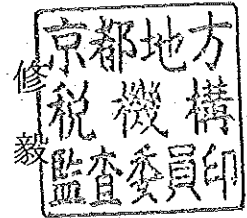 京都地方
税機構
監査委員印
修毅